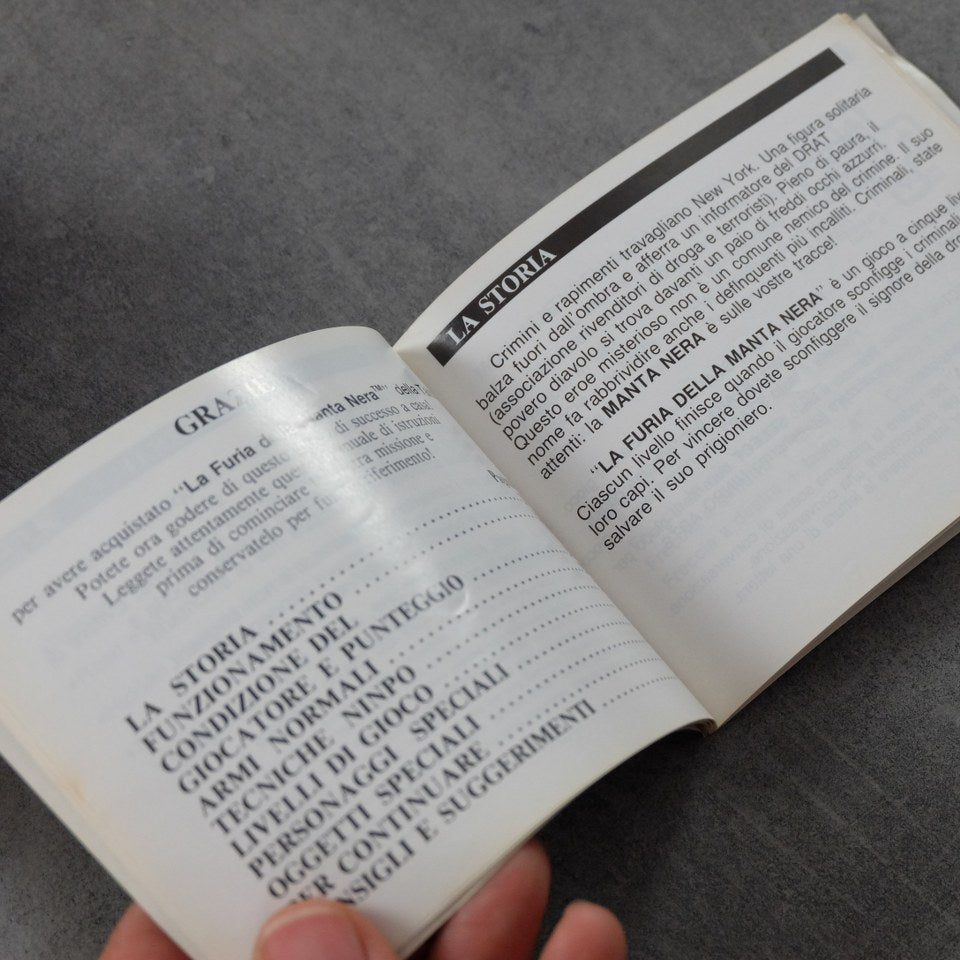 GRAZIE
per avere acquistato "La Furia della Manta Nera™" della
Potete ora godere di questo di successo a casa!
Leggete attentamente questo manuale di istruzioni
prima di cominciare la vostra missione e
conservatelo per futuro riferimento!
LA STORIA
FUNZIONAMENTO
CONDIZIONE DEL
GIOCATORE E PUNTEGGIO
ARMI NORMALI
TECNICHE NINPO
LIVELLI DI GIOCO
PERSONAGGI SPECIALI
OGGETTI SPECIALI
PER CONTINUARE
CONSIGLI E SUGGERIMENTI
LA STORIA
Crimini e rapimenti travagliano New York. Una figura solitaria
balza fuori dall'ombra e afferra un informatore del DRAT
(associazione rivenditori di droga e terroristi). Pieno di paura, il
povero diavolo si trova davanti un paio di freddi occhi azzurri,
Questo eroe misterioso non è un comune nemico del crimine. Il suo
nome fa rabbrividire anche i delinquenti più incalliti. Criminali, state
attenti: la MANTA NERA è sulle vostre tracce!
"LA FURIA DELLA MANTA NERA" è un gioco a cinque
Ciascun livello finisce quando il giocatore sconfigge i criminali
loro capi. Per vincere dovete sconfiggere il signore della
salvare il suo prigioniero.